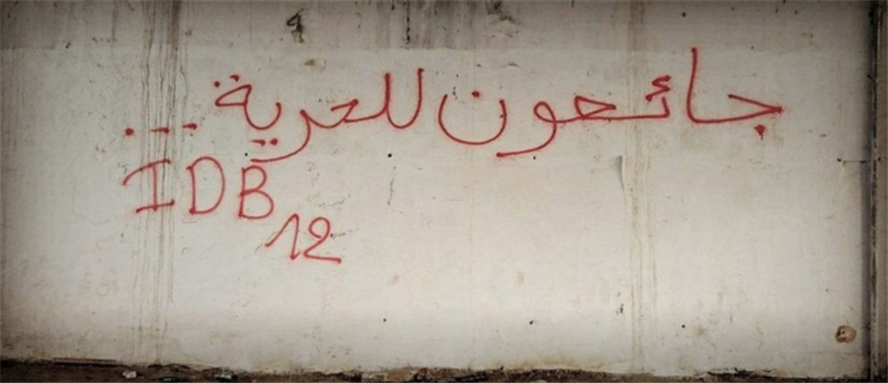 جائعون للحرية...
IDB
12